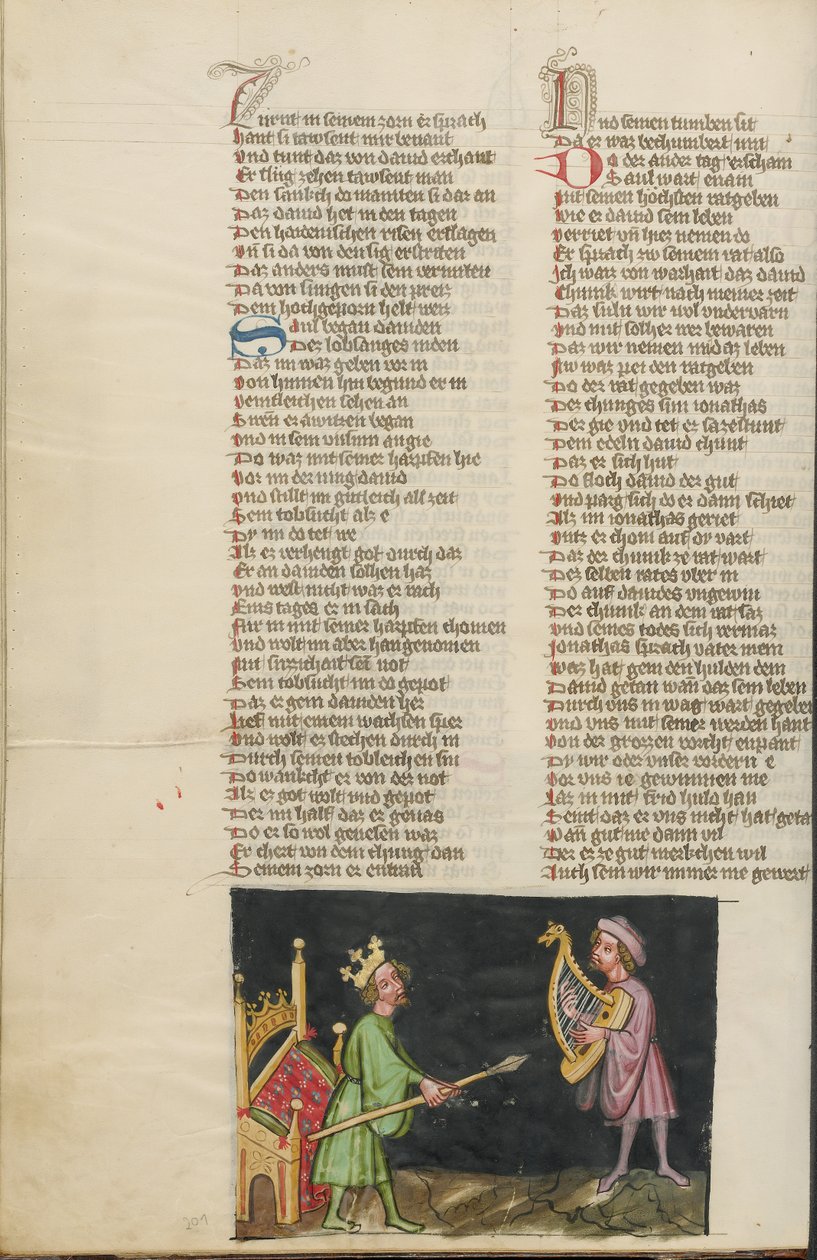 Zurnt in seinem zorn er sprach
Hant si tawsent mir benant
Vnd tunt daz von dauid erchant
Er slug zehen tawsent man
Den sankch do manten si dar an
Daz dauid het in den tagen
Den haidenischen risen erslagen
Vn̄ si da von den sig erstriten
Daz anders must sein vermiten
Da von sungen si den preis
Dem hochgeporn helt weis
Saul began dauiden
Der lobsanges niden
Daz im waz geben vor in
Von hinnen hin begund er in
Veintleichen sehen an
Siren er awitzen began
Vnd in sein vnsinn angie
Do waz mit seiner harpfen hie
Vor im der iung dauid
Vnd stillt im gutleich all zeit
Sein tobsucht alz e
Dy im do tet we
Alz er verhengt got durch daz
Er an dauiden solhen haz
Vnd west nicht waz er rach
Eins tages er in sach
Fur in mit seiner harpfen chomen
Vnd wolt im aber han genomen
Mit suzichait sein not
Sein tobsucht im do gepot
Daz er gein dauiden her
Lief mit einem wachsen sper
Vnd wolt er stechen durch in
Durch seinen tobleichen sin
Do wankcht er von der not
Alz er got wolt vnd gepot
Der im half daz er genas
Do er so wol genesen waz
Er chert von dem chung dan
Seinem zorn er entran
Vnd seinen tumben sit
Da er waz bechumbert mit
Do der ander tag erscham
Saul wart enain
Mit seinen hochsten ratgeben
Wie er dauid sein leben
Verriet vn̄ hiez nemen do
Er sprach zw seinem rat also
Ich waiz von warhait daz dauid
Chunik wirt nach meiner zeit
Daz suln wir wol vndervarn
Vnd mit solher wer bewaren
Daz wir nemen im daz leben
Nw waz pei den ratgeben
Do der rat gegeben waz
Der chunges sun ionathas
Der gie vnd tet er sazestunt
Dem edeln dauid chunt
Daz er sich hut
Do floch dauid der gut
Vnd parg sich do er dann schiet
Alz im ionathas geriet
Vntz er chom auf dy vart
Daz der chunik ze rat wart
Dez selben rates vber in
Do auf dauides vngewin
Der chunik an dem rat saz
Vnd seines todes sich vermaz
Jonathas sprach vater mein
Waz hat gein den hulden dein
Dauid getan wan̄ daz sein leben
Durch vns in wag wart gegeben
Vnd vns mit seiner werden hant
Von der grozzen vorcht enpant
Dy wir oder vnser vordern e
Vor vns ie gewunnen me
Laz in mit frid huld han
Seint daz er vns nicht hat getan
Wan̄ gut me dann vil
Der er ze gut merkchen wil
Auch sein wir immer me gewert
201